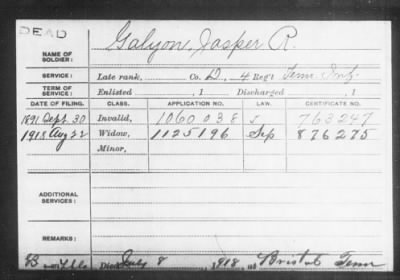 DEAD
NAME OF SOLDIER: Galyon, Jasper R.
SERVICE: Late rank, Co. D, 4 Reg't Tenn Inf.
TERM OF SERVICE: Enlisted , 1 Discharged , 1
DATE OF FILING. CLASS. APPLICATION NO. LAW. CERTIFICATE NO.
1891 Sept. 30 Invalid, 1060038 763247
1918 Aug 22 Widow, 1125196 Sep 876275
Minor,
ADDITIONAL SERVICES:
REMARKS:
Died July 8, 1918, at Bristol Tenn